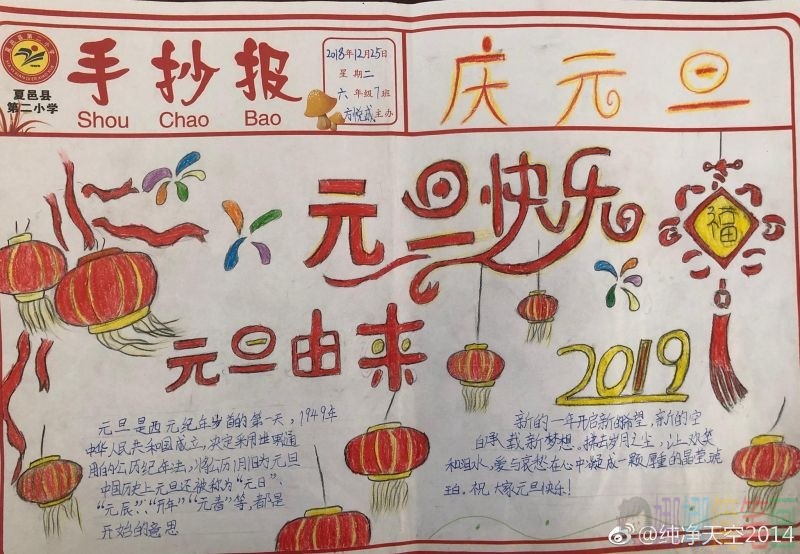 夏邑县
第二小学
手抄报
Shou Chao Bao
2018年12月25日
星期二
六年级7班
主办
庆元旦
元旦快乐
福
元旦由来
2019
元旦是西元纪年岁首的第一天，1949年
中华人民共和国成立，决定采用世界通
用的公历纪年法，将公历1月1日为元旦
中国历史上元旦还被称为“元日”、
“元辰”、“开年”“元春”等，都是
开始的意思
新的一年开启新的希望，新的空
白承载新梦想。拂去岁月之尘，让欢笑
和泪水，爱与哀愁在心中凝成一颗厚重的晶莹琥
珀。祝大家元旦快乐！
@纯净天空2014